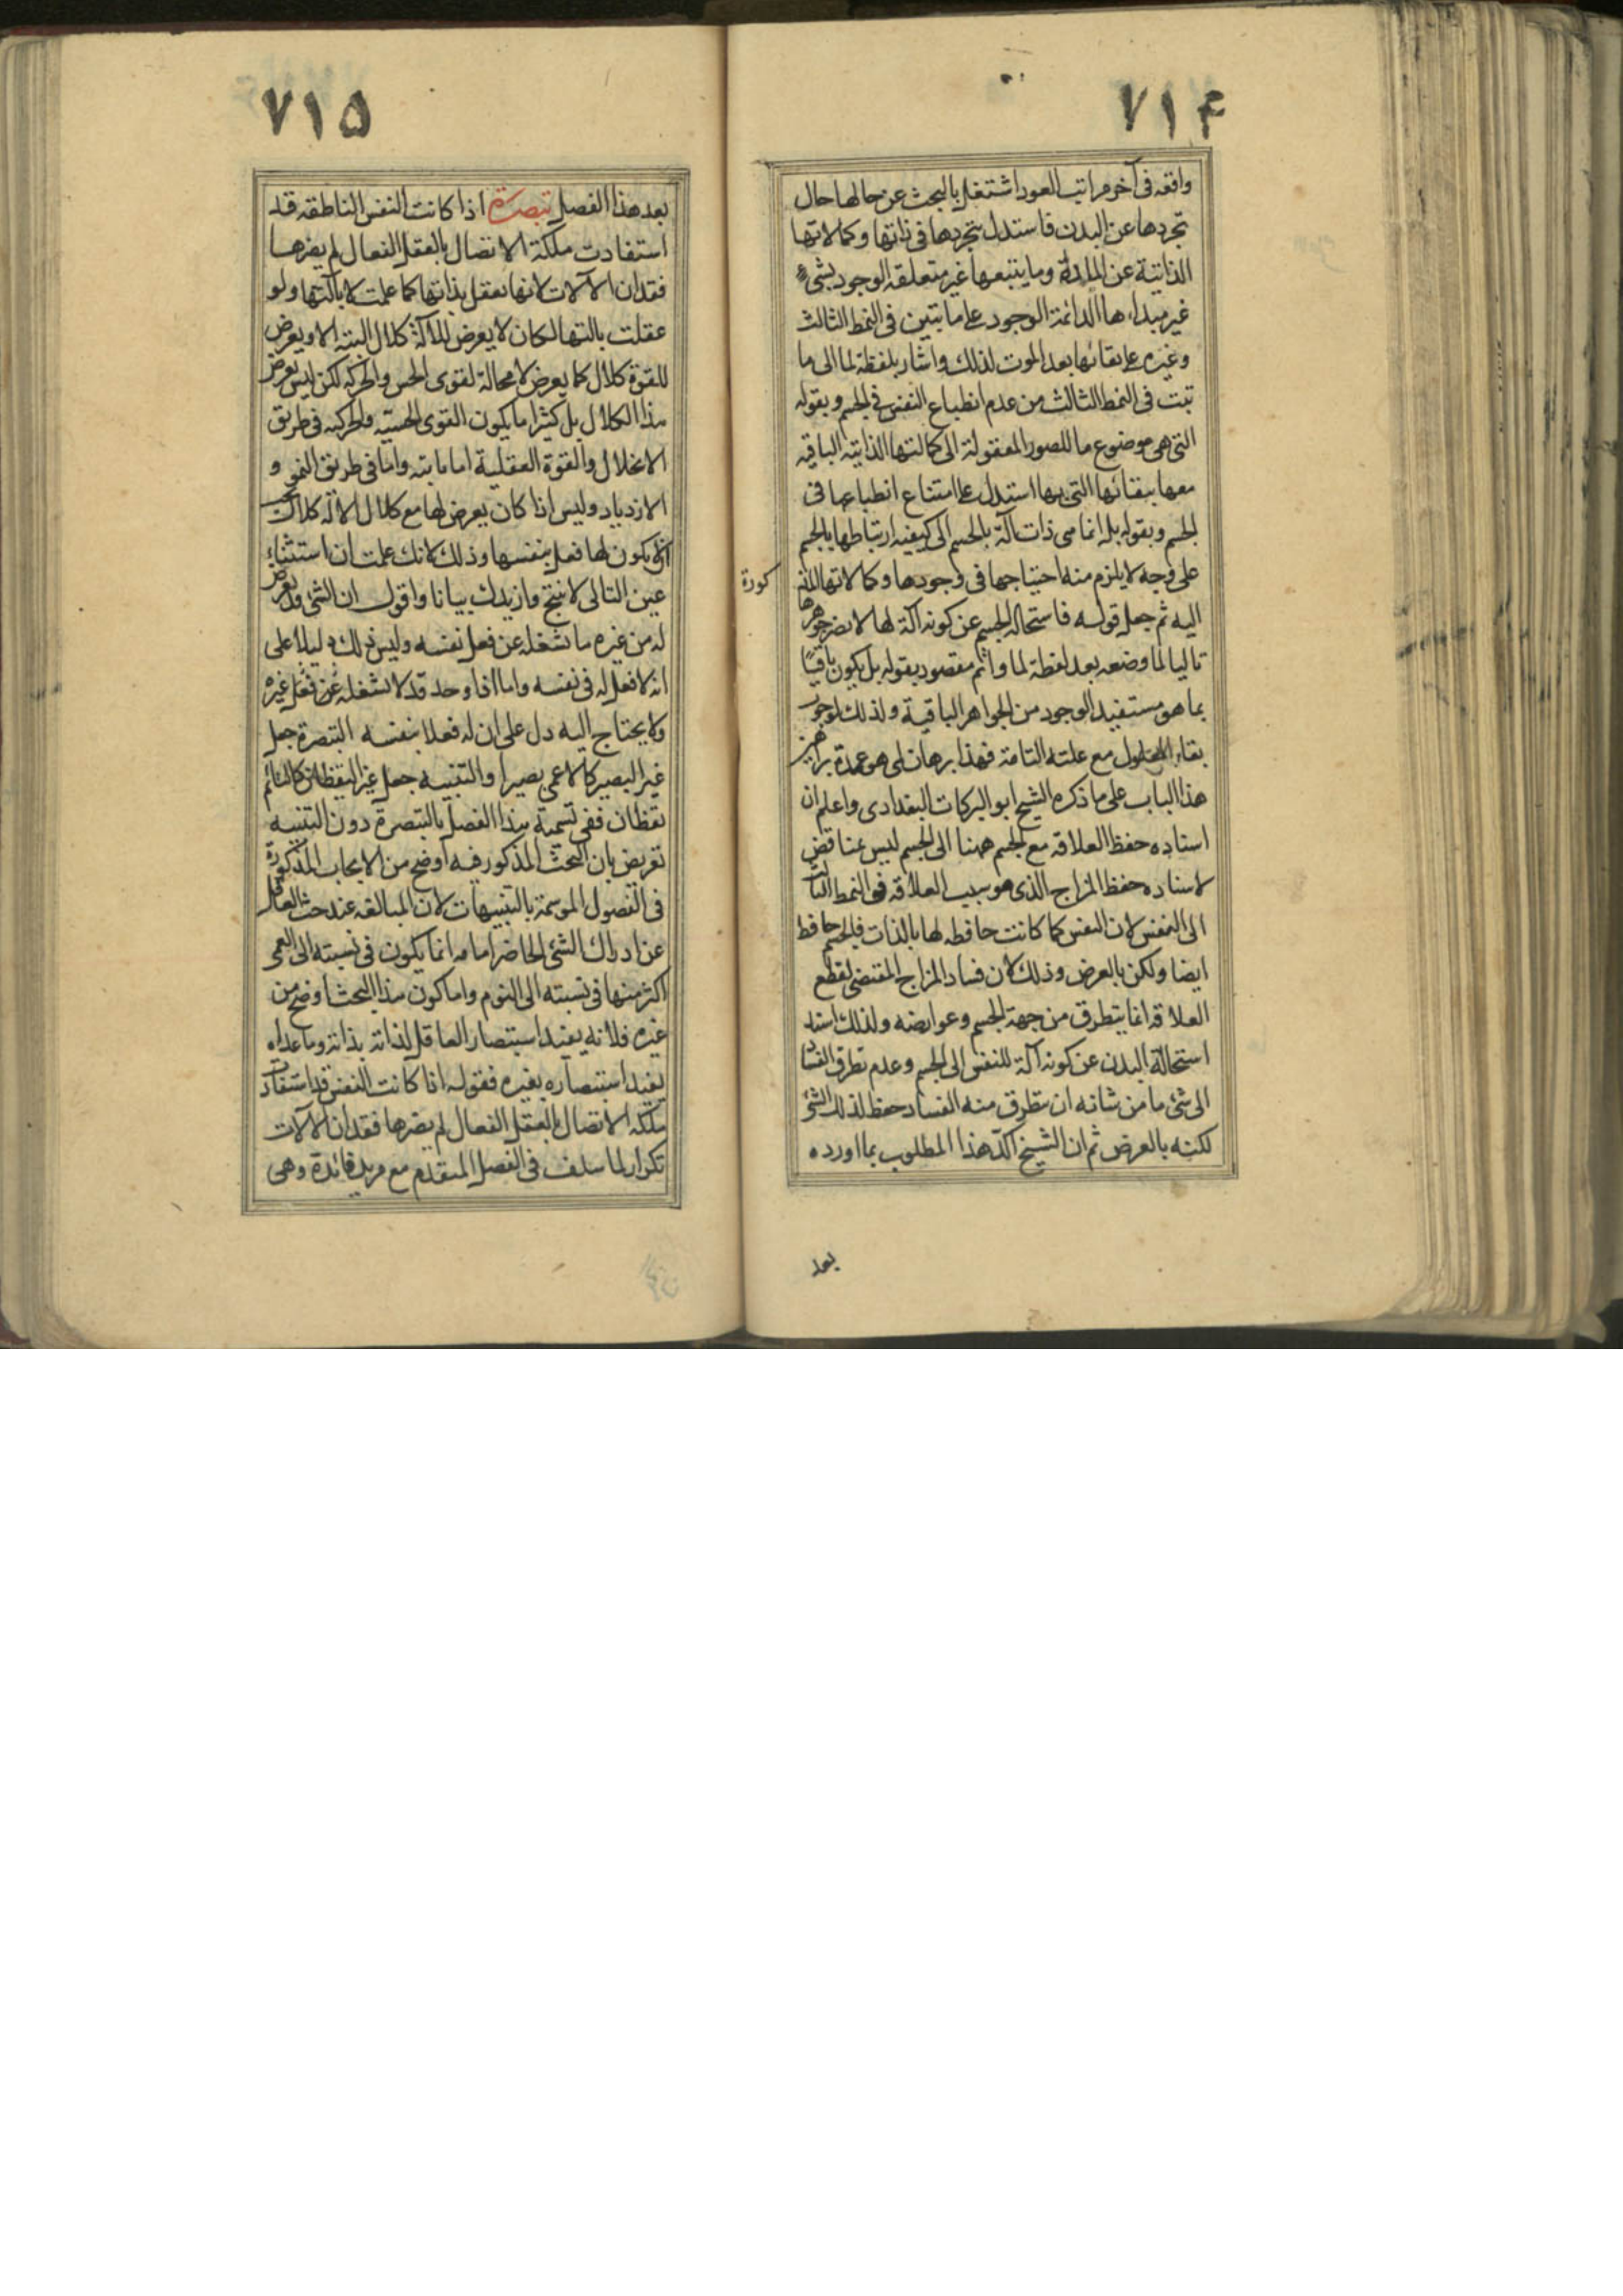 ٧١۴
واقعه فى آخر مراتب العود اشتغل بالبحث عن حالها حال
تجردها عن البدن فاستدل بتجردها فى ذاتها وكمالاتها
الذاتية عن المادة وما يتبعها غير متعلقه الوجود بشىء
غير مبداءها الدائمة الوجود على ما تبين فى النمط الثالث
وغيره على بقائها بعد الموت لذلك واشار بلفظة لما الى ما
ثبت فى النمط الثالث من عدم انطباع النفس فى الجسم وبقوله
التى هى موضوع ما للصور المعقولة الى كمالاتها الذاتية الباقيه
معها ببقائها التى بها استدل على امتناع انطباعها فى
الجسم وبقوله بل انما هى ذات آلة بالجسم الى كيفيه ارتباطها بالجسم
على وجه لا يلزم منه احتياجها فى وجودها وكمالاتها المذ
كورة
اليه ثم جعل قوله فاستحاله الجسم عن كونه آلة لها لا يضر جوهرها
تاليا لما وضعه بعد لفظة لما واتم مقصوده بقوله بل يكون باقيًا
بما هو مستفيد الوجود من الجواهر الباقية وذلك لوجوب
بقاء المعلول مع علته التامة فهذا برهان لمى هو عمدة براهين
هذا الباب على ما ذكره الشيخ ابو البركات البغدادى واعلم ان
اسناده حفظ العلاقه مع الجسم ههنا الى الجسم ليس بمناقض
لاسناده حفظ المزاج الذى هو سبب العلاقه فى النمط الثالث
الى النفس لان النفس كما كانت حافظه لها بالذات فالجسم حافظ
ايضا ولكن بالعرض وذلك لان فساد المزاج المقتضى لقطع
العلاقه انما يتطرق من جهة الجسم وعوارضه ولذلك اسند
استحالة البدن عن كونه آلة للنفس الى الجسم وعدم تطرق الفساد
الى شئ ما من شانه ان يتطرق منه الفساد حفظ لذلك الشئ
لكنه بالعرض ثم ان الشيخ اكّد هذا المطلوب بما اورده
بعد
٧١۵
بعد هذا الفصل تبصرة اذا كانت النفس الناطقه قد
استفادت ملكة الاتصال بالعقل الفعال لم يضرها
فقدان الآلات لانها تعقل بذاتها كما علمت لا بآلتها ولو
عقلت بآلتها لكان لا يعرض للآلة كلال البته الا ويعرض
للقوة كلال كما يعرض لا محالة لقوى الحس والحركه لكن ليس يعرض
هذا الكلال بل كثيرا ما يكون القوى الحسيه والحركيه فى طريق
الانحلال والقوة العقلية اما ثابته واما فى طريق النمو و
الازدياد وليس اذا كان يعرض لها مع كلال الآلة كلال
ان لا يكون لها فعل بنفسها وذلك لانك علمت ان استثناء
عين التالى لا ينتج وازيدك بيانا واقول ان الشئ قد يعرض
له من غيره ما يشغله عن فعل نفسه وليس ذلك دليلا على
انه لا فعل له فى نفسه واما اذا وجد قد لا يشغله عن فعل غيره
ولا يحتاج اليه دل على ان له فعلا بنفسه التبصرة جعل
غير البصير كالاعمى بصيرا والتنبيه جعل غير اليقظان كالنائم
يقظان ففى تسمية هذا الفصل بالتبصرة دون التنبيه
تعريض بان البحث المذكور فيه اوضح من الابحاث المذكورة
فى الفصول الموسمة بالتنبيهات لان المبالغه عند حث الغافل
عن ادراك الشئ الحاضر امامه انما يكون فى نسبته الى العمى
اكثر منها فى نسبته الى النوم واما كون هذا البحث اوضح من
غيره فلانه يفيد استبصار العاقل لذاته بذاته وما عداه
يفيد استبصاره بغيره فقوله اذا كانت النفس قد استفادت
ملكة الاتصال بالعقل الفعال لم يضرها فقدان الآلات
تكرار لما سلف فى الفصل المتقدم مع مزيد فائدة وهى